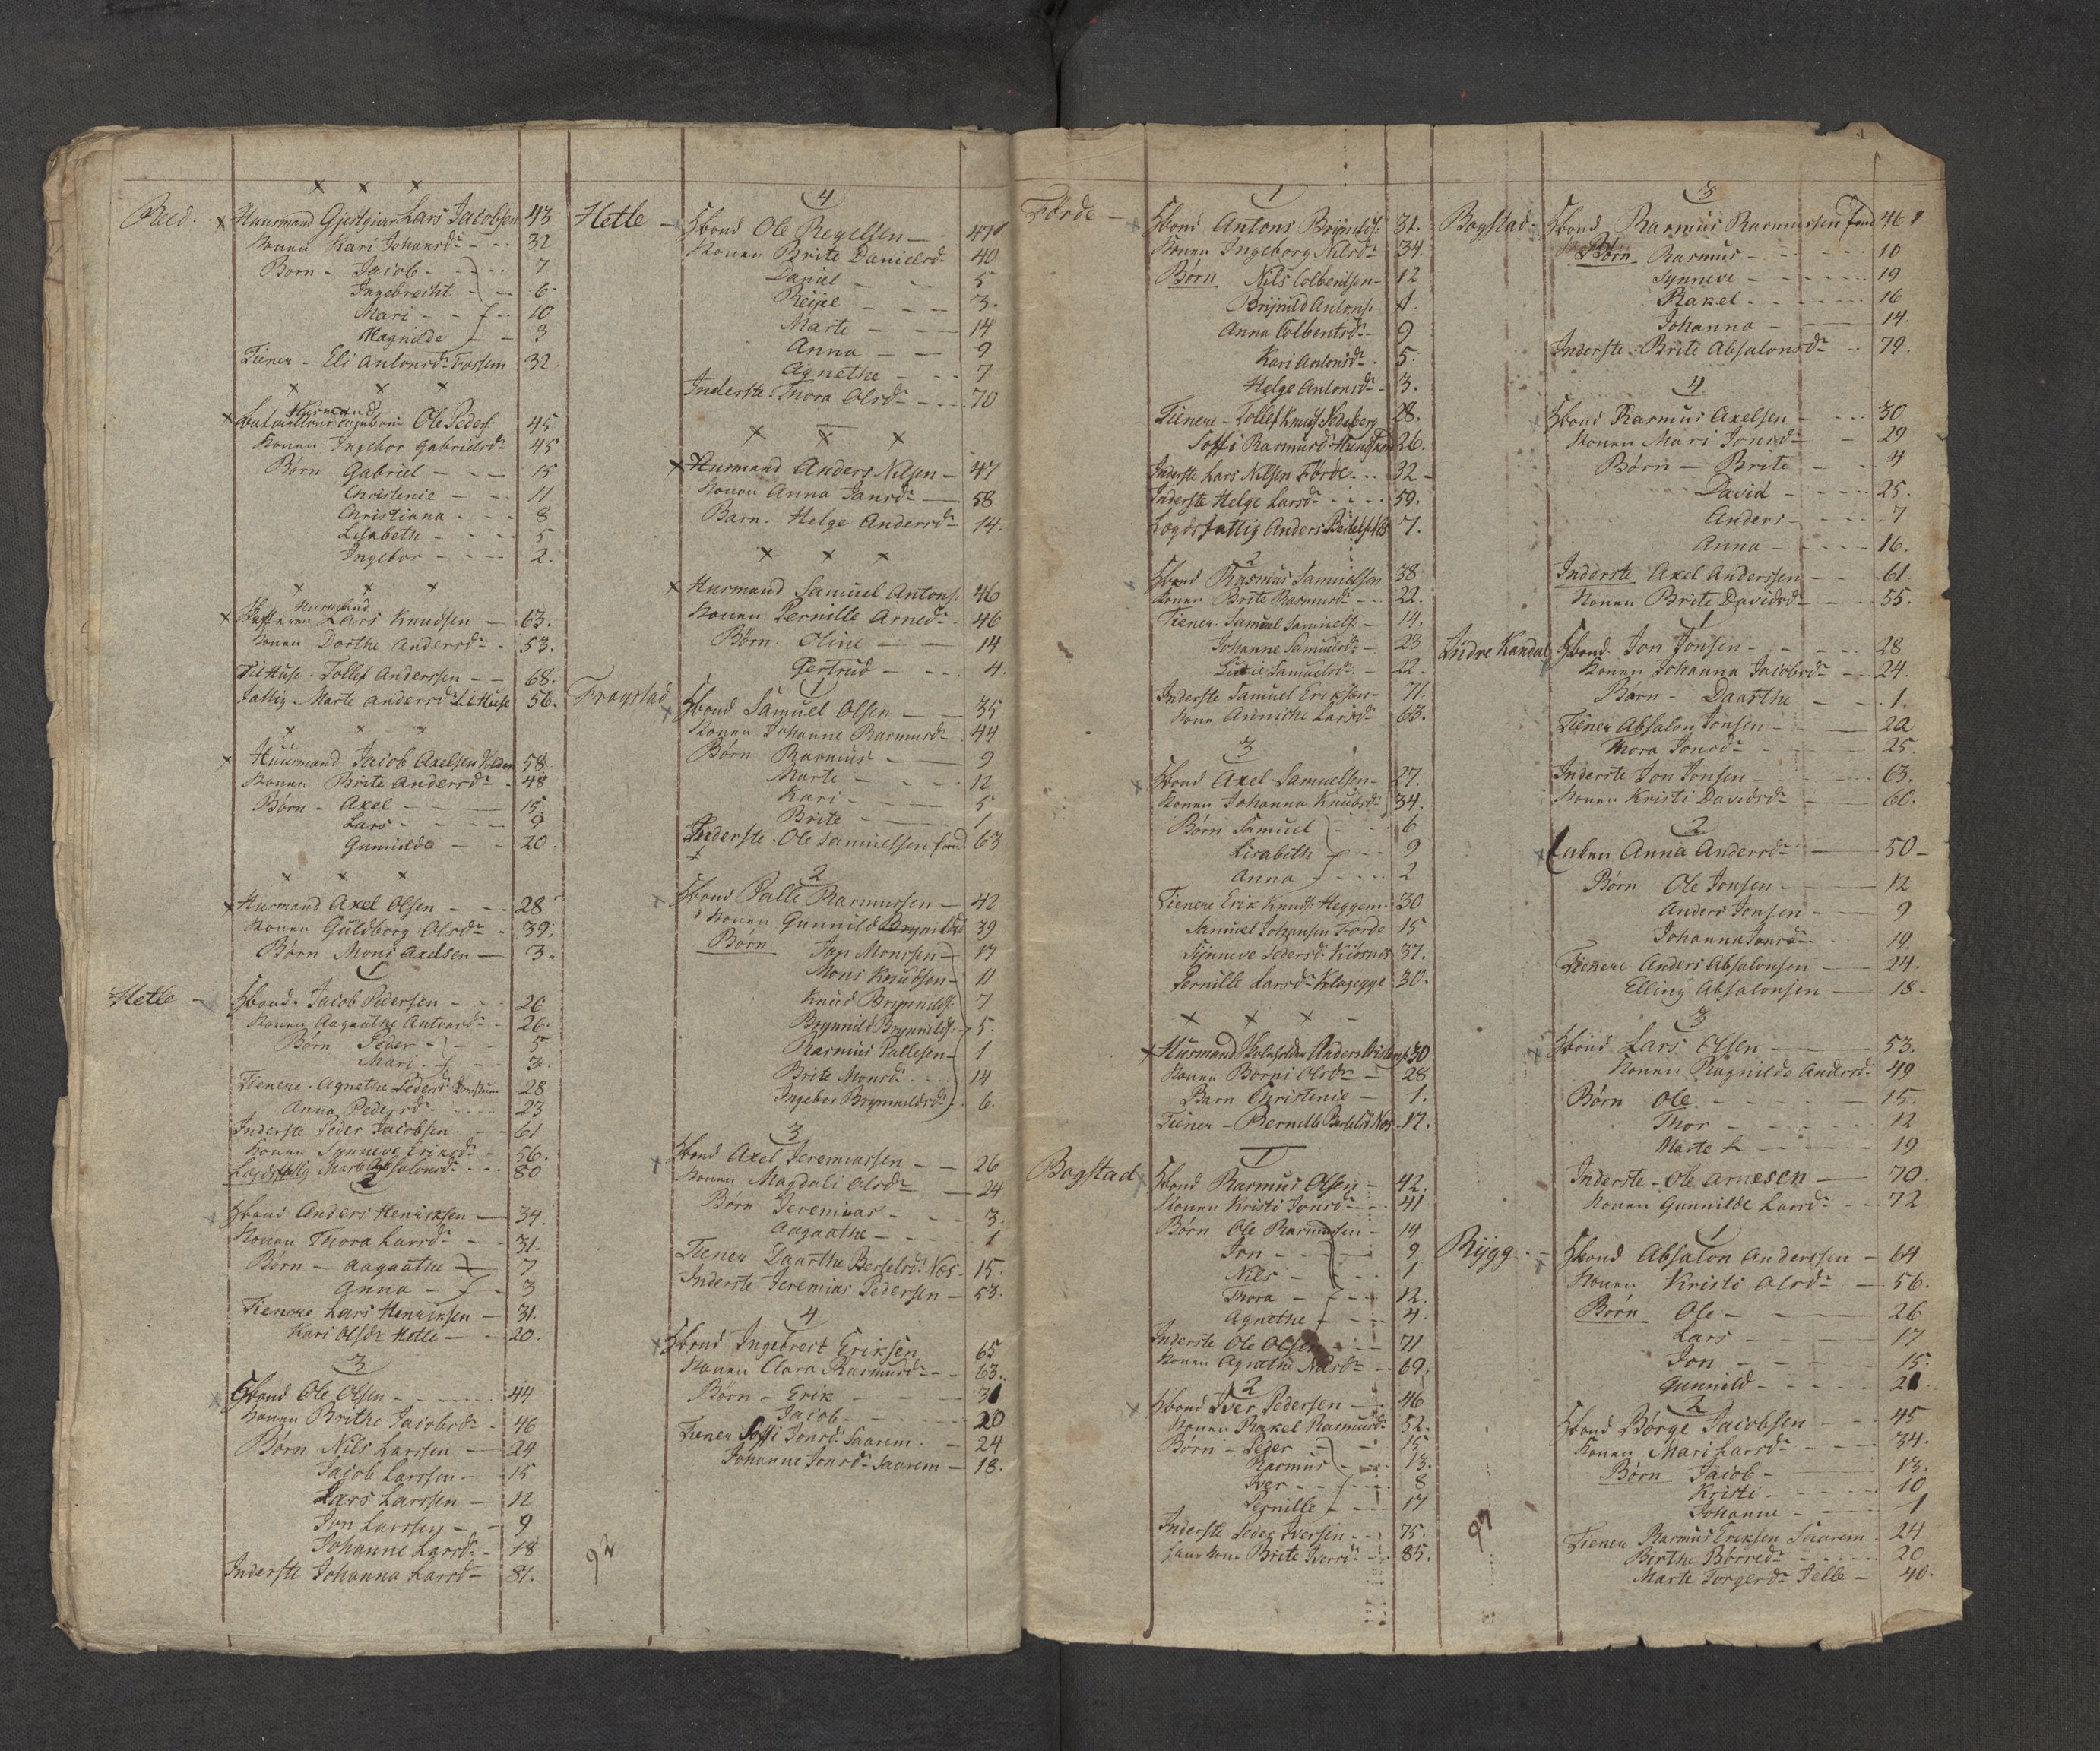 x x x
Reed. x Huusmand Gjestgiver Lars Jacobsen 43
Konen Kari Johansdr - - 32
Børn - Jacob - - - 7
Ingebrecht - - 6
Mari - - - 10
Magnilde - - 3
Tiener - Eli Antonsdr Fossem 32
x x x
Husmand
x Ole Peders: 45
Konen Ingebor Gabrielsdr 45
Børn Gabriel - - - 15
Christenie - - 11
Christiana - - - 8
Lisabeth - - - 5
Ingebor - - - 2.
x x x
Husmand
x Lars Knudsen - 63.
Konen Dorthe Andersdr - 53.
Til Huse - Tollef Anderssen - - 68.
Fattig - Marte Andersdr Til Huse 56.
x x x
x Huusmand Jacob Axelsen 58
Konen Brite Andersdr - 48
Børn - Axel - - 15
Lars - - - 9
Gunnilda - - 20
x x x
x Husmand Axel Olsen - - 28
Konen Guldborg Olsdr - 39.
Børn Mons Axelsen - 3.
1
Hetle - Hbond. Jacob Pedersen - - 26
Konen Aagaathe Antonsdr - 26.
Børn Peder - - - 5
Mari - - 3.
Tienere. Agnethe Pedersdr 28
Anna Pedersdr - - 23
Inderste Peder Jacobsen - - 61
Konen Synneve Eriksdr - 56.
Lægdsfattig Marte Absalonsdr - - 80
2
x Hbond Anders Henriksen - 34.
Konen Thora Larsdr - - 31.
Børn - Aagaathe - 7
Anna - - 3
Tienere Lars Henriksen - 31.
Kari Olsdr Hetle - - 20.
3
x Hbond Ole Olsen - - - 44
Konen Brithe Jacobsdr - 46
Børn Nils Larssen - 24
Jacob Larssen - 15
Lars Larssen - 12
Jon Larssen - - 9
Johanne Larsdr - 18
Inderste Johanna Larsdr - 81.
4
Hetle - Hbond Ole Reyelsen - - 47
Konen Brite Danielsdr. 40
Daniel - - - 5
Reijel - - - 3.
Marte - - - 14
Anna - - - 9
Agnethe - - - 7
Inderste Thora Olsdr - - - 70
x x x
x Husmand Anders Nilsen - 47
Konen Anna Jansdr - 58
Barn. Helge Andersdr - 14.
x x x
x Husmand Samuel Antons: 46
Konen Pernille Arnedr - 46
Børn. Oline - - 14
Gertrud - - - 4.
1
Frøystad x Hbond Samuel Olsen - 35
Konen Johanne Rasmusdr - 44
Børn Rasmus - - 9
Marte - - - 12
Kari - - - 5
Brite - - 1
Inderste - Ole Samuelssen fød 63
x
2
x Hbond Palle Rasmussen - 42
Konen Gunnild 39
Børn Jon Monssen - 17
Mons Knudsen - 11
Knud Brynnilds: 7
Brynnild Brynnilds: 5.
Rasmus Pallesen - 1
Brite Monsdr - - 14
Ingebor Brynnildsdr - 6.
3
x Hbond Axel Jeremiassen - - 26
Konen Magdali Olsdr - 24
Børn Jeremias - - - 3.
Aagaathe - - - 1
Tiener Daarthe Berselsdr: Nøs - 15.
Inderste Jeremias Pedersen - 53.
4
x Hbond Ingebret Eriksen 65
Konen Clara Rasmusdr - - 63.
Børn - Erik - - - 31
Jacob - - - 20
Tiener Soffi Jonsdr. Saarem - - 24
Johanne Jonsdr Saarem - 18.
92
1
Førde - Hbond Antons Brijnilds: 31.
Konen Ingeborg Nilsdr - 34.
Børn Nils Colbentsen - 12
Brijnild Antons: 1.
Anna Colbentsdr - 9
Kari Antonsdr - 5.
Helge Antonsdr - 3.
Tienere - Tollef Knuds: 28.
Soffi Rasmusdr 26.
Inderste Lars Nilsen Førde - - 32 -
Inderste Helge Larsdr - - - 59.
Lægdsfattig Anders 7.
2
x Hbond Rasmus Samuelsen 38
Konen Brite Rasmusdr - - 22.
Tiener. Samuel Samuels: - 14.
Johanne Samuelsdr - 23
Samuelsdr - 22
Inderste Samuel Eriksen - 71.
Kone Anniche Larsdr - 63.
3
x Hbond Axel Samuelsen - 27.
Konen Johanna Knudsdr 34.
Børn Samuel - - 6
Lisabeth - - 9
Anna - - - 2
Tienere Erik Knuds: Heggem. 30
Samuel Johansen Førde 15
Synneve Pedersdr Kiørnes 37.
Pernille Larsdr 30.
x x x -
x Husmand Anders 30
Konen Borni Olsdr - 28
Barn Christenie - 1.
Tiener - Pernille Berselsdr Nøs - 17.
1
Bogstad x Hbond Rasmus Olsen - 42.
Konen Kristi Jonsdr - - 41
Børn Ole Rasmussen - 14
Jon - - - 9
Nils - - 1
Thora - - - 12.
Agnethe - - - 4.
Inderste Ole Olsen - 71
Konen Agnethe Nilsdr - - 69.
2
x Hbond Iver Pedersen - - 46
Konen Rakel Rasmusdr. 52.
Børn - Peder - - 15
Rasmus - - 13.
Iver - - - 8
Pernille - - - 17
Inderste Peder Iversen - - 75.
hans kone Brite Iversdr - - 85.
3
Bogstad - Hbond Rasmus Rasmussen fød 46
Børn Rasmus - - - 10
Synneve - - - 19
Rakel - - - 16
Johanna - - 14.
Inderste - Brite Absalonsdr - - 79.
4.
x Hbond Rasmus Axelsen - - - 30
Konen Mari Jonsdr - - 29
Børn - Brite - - - 4
David - - - 25.
Anders - - - 7
Anna - - - - 16.
Inderste Axel Anderssen - - 61.
Konen Brite Davidsdr - - 55.
1
Indre Kandal x Hbond. Jon Jonsen - - - 28
Konen Johanna Jacobsdr - - 24.
Børn - Daarthe - - - 1.
Tiener Absalon Jonsen - - 22
Thora Jonsdr - - - 25.
Inderste Jon Jonsen - - - 63.
Konen Kristi Davidsdr - - 60.
2
x Enken Anna Andersdr - - 50 -
Børn Ole Jonsen - - 12
Anders Jonsen - - 9
Johanna Jonsdr - - 19.
Tienere Anders Absalonsen - 24.
Elling Absalonsen - 18 -
3
x Hbond Lars Olsen - - - 53.
Konen Ragnilde Andersdr. 49
Børn Ole - - - 15.
Thor - - - - 12
Marte - - - 19
Inderste - Ole Arnesen - 70.
Konen Gunnilde Larsdr - - 72
1
Rygg - - Hbond Absalon Anderssen - 64
Konen Kristi Olsdr - - 56.
Børn Ole - - - 26
Lars - - - 17
Jon - - - 15.
Gunnild - - - 21
2
Hbond Børge Jacobsen - - 45
Konen Mari Larsdr - - - 34.
Børn Jacob - - - 13.
Kristi - - - 10
Johanne - - - 1
Tiener Rasmus Eriksen Saarem. 24
Birthe Børredr - - - 20
Marte Torgersdr - 40.
97